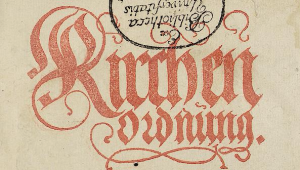 Ex
Bibliotheca
Universitatis
Kirchen
Ordnung.